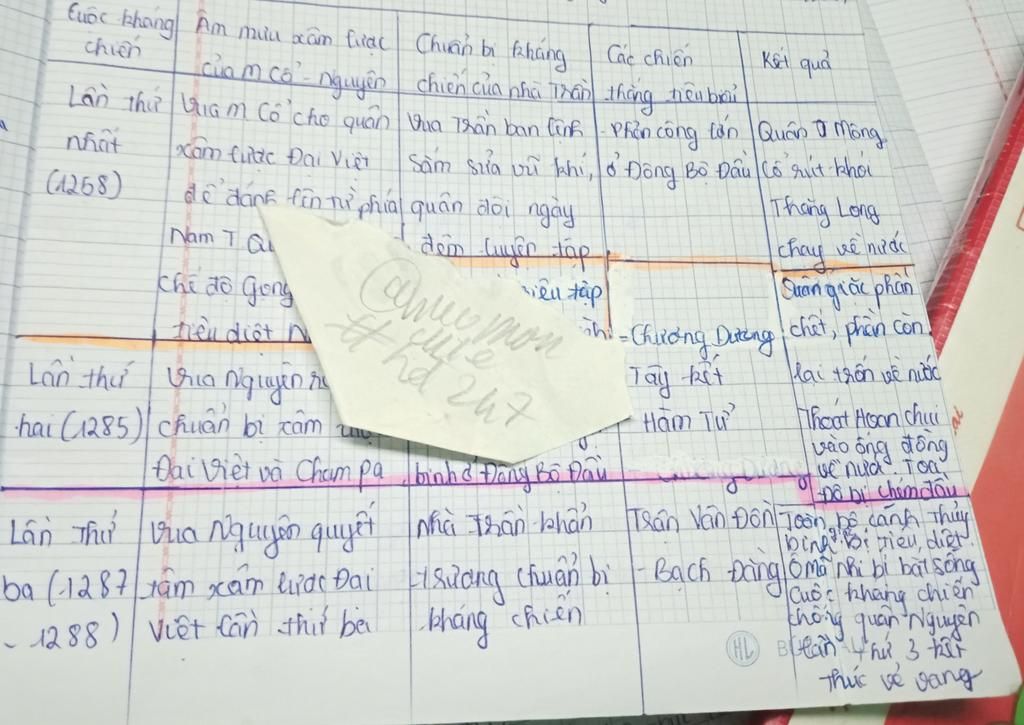 Cuộc kháng chiến
Âm mưu xâm lược của M Cổ - Nguyên
Chuẩn bị kháng chiến của nhà Trần
Các chiến thắng tiêu biểu
Kết quả
Lần thứ
nhất
(1258)
Vua M Cổ cho quân
xâm lược Đại Việt
để đánh lên từ phía
Nam T
chế độ gọng
tiêu diệt N
Vua Trần ban lệnh
sắm sửa vũ khí,
quân đội ngày
đêm luyện tập
- Phản công lớn
ở Đông Bộ Đầu
Quân Mông
Cổ rút khỏi
Thăng Long
chạy về nước
Lần thứ
hai (1285)
Vua Nguyên
chuẩn bị xâm
Đại Việt và Champa
tập
binh ở Đông Bộ Đầu
- Chương Dương
Tây kết
Hàm Tử
Quân giặc phần
chết, phần còn
lại trốn về nước
Thoát Hoan chui
vào ống đồng
về nước Toa
Đô bị chém đầu
@meo mon
cute
#hd 247
Lần Thứ
ba (1287
- 1288)
Vua Nguyên quyết
tâm xâm lược Đại
Việt lần thứ ba
Nhà Trần khẩn
trương chuẩn bị
kháng chiến
Trần Vân Đồn
- Bạch Đằng
Toàn bộ cánh Thủy
binh bị tiêu diệt
Ô mã nhi bị bắt sống
Cuộc kháng chiến
chống quân Nguyên
lần thứ 3 kết
thúc vẻ vang
HL